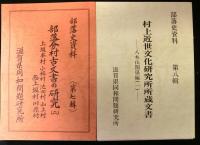 部落史資料 第八輯
村上近世文化研究所所蔵文書
滋賀県同和問題研究所
部落史資料（第七輯）
部落各村古文書の研究
滋賀県同和問題研究所